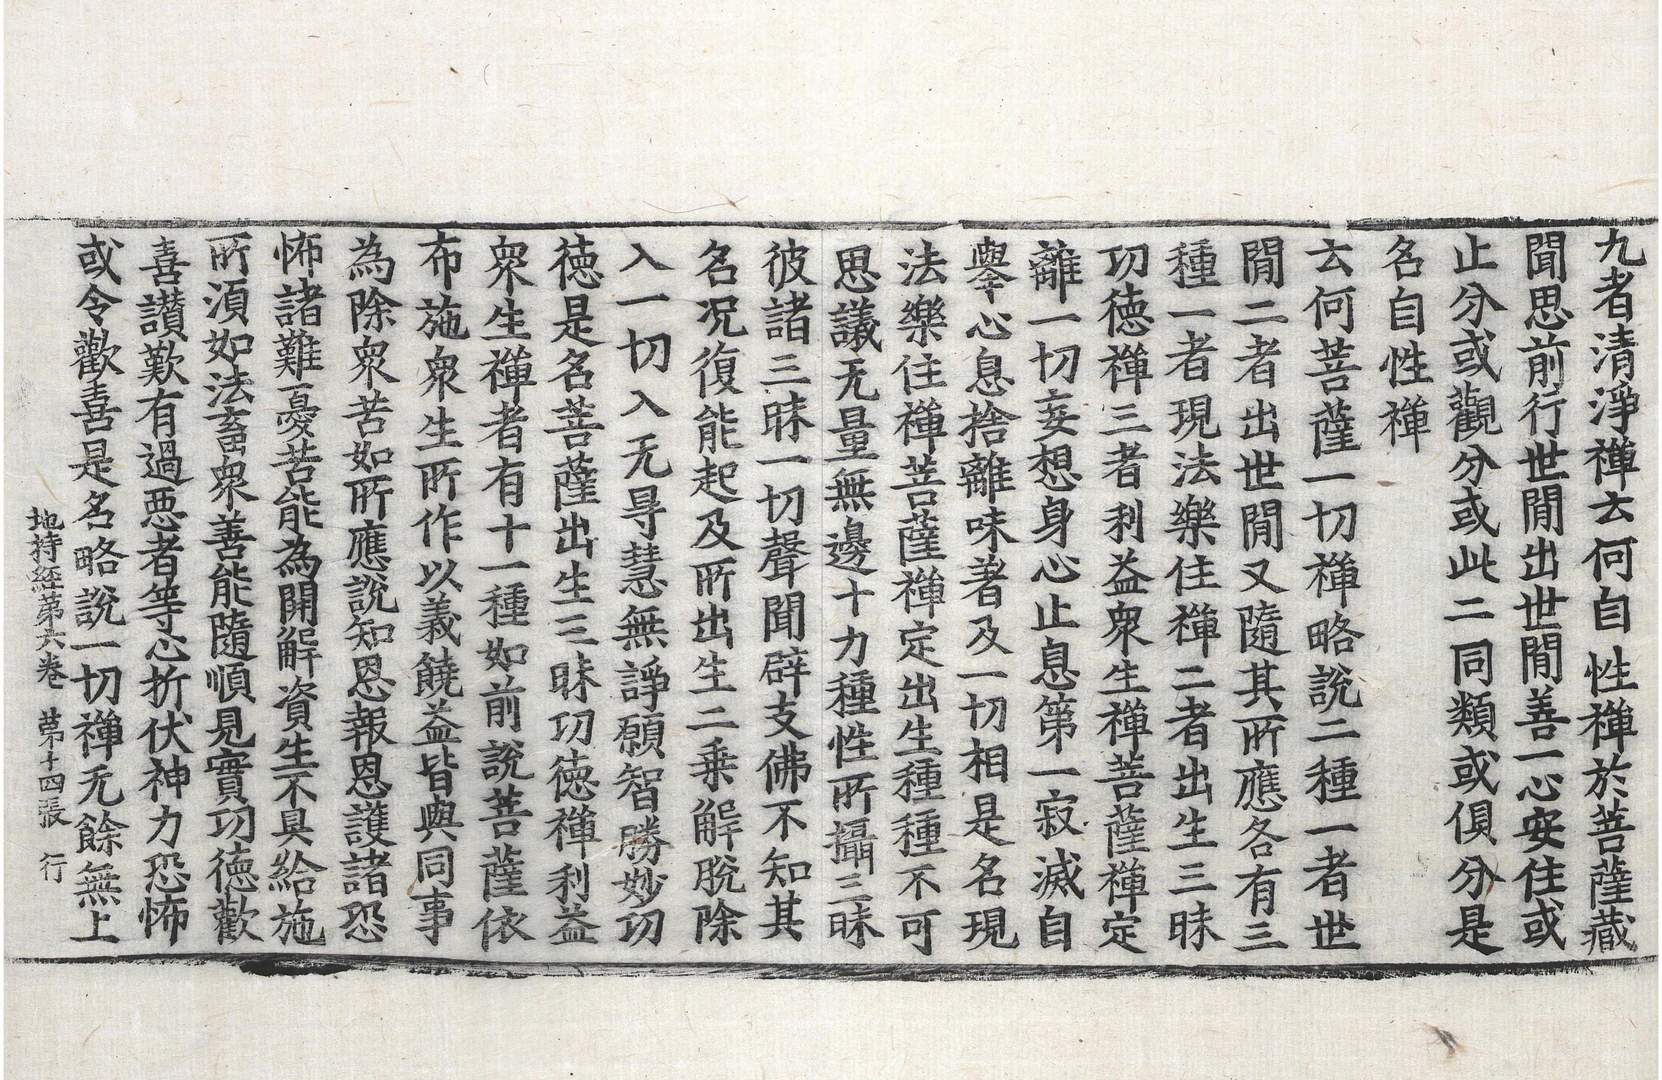 九者清淨禪云何自性禪於菩薩藏
聞思前行世閒出世閒善一心安住或
止分或觀分或此二同類或俱分是
名自性禪
云何菩薩一切禪略說二種一者世
閒二者出世閒又隨其所應各有三
種一者現法樂住禪二者出生三昧
功德禪三者利益衆生禪菩薩禪定
離一切妄想身心止息第一寂滅自
擧心息捨離味著及一切相是名現
法樂住禪菩薩禪定出生種種不可
思議无量無邊十力種性所攝三昧
彼諸三昧一切聲聞辟支佛不知其
名况復能起及所出生二乘解脫除
入一切入无㝵慧無諍願智勝妙功
德是名菩薩出生三昧功德禪利益
衆生禪者有十一種如前說菩薩依
布施衆生所作以義饒益皆與同事
為除衆苦如所應說知恩報恩護諸恐
怖諸難憂苦能為開解資生不具給施
所須如法畜衆善能隨順見實功德歡
喜讃歎有過惡者等心折伏神力恐怖
或令歡喜是名略說一切禪无餘無上
地持經第六卷 第十四張 行